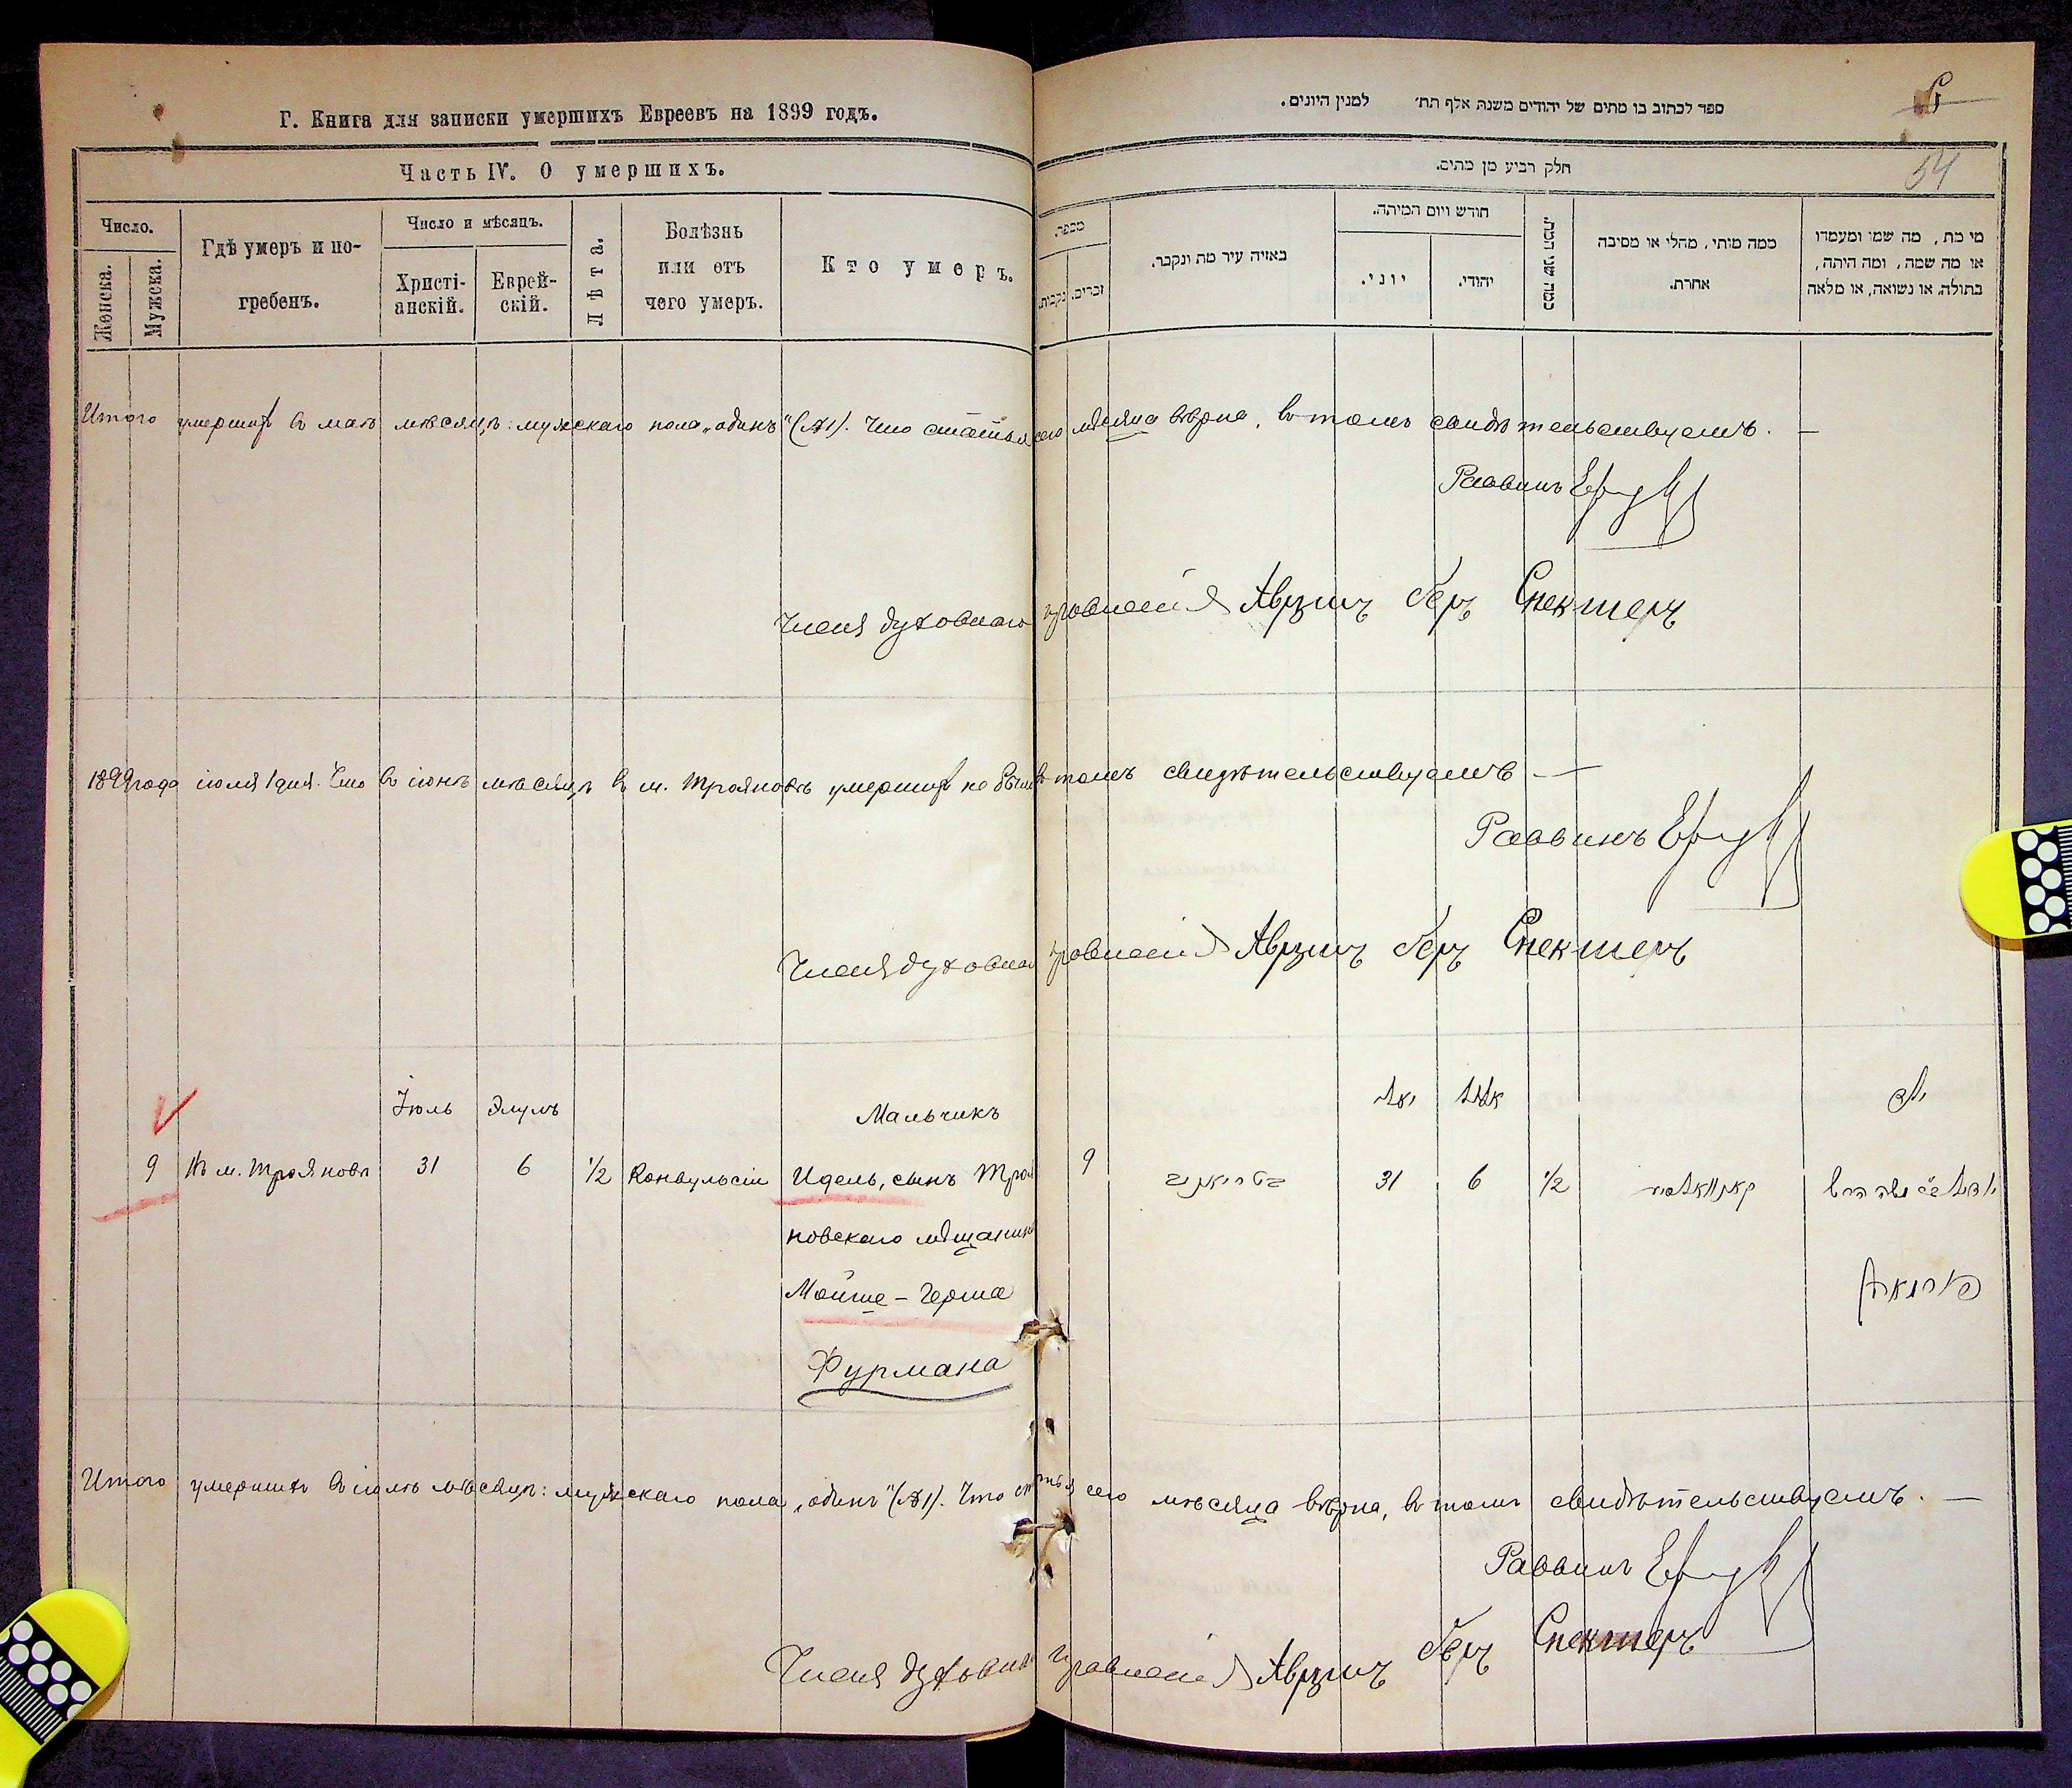 Г. Книга для записки умершихъ Евреевъ на 1899 годъ.
Часть IV. О умершихъ.
Число.
Женска.
Мужска.
Гдѣ умеръ и по-
гребенъ.
Число и мѣсяцъ.
Христі-
анскій.
Еврей-
скій.
Лѣта.
Болѣзнь
или отъ
чего умеръ.
Кто умеръ.
ספר לכתוב בו מתים של יהודים משנת אלף תת׳ למנין היונים.
54
חלק רביע מן מתים.
מספר.
נקבות.
זכרים.
באיזה עיר מת ונקבר.
חודש ויום המיתה.
יוני.
יהודי.
כמה שני המת.
ממה מותי, מחלי או מסיבה
אחרת.
מי מת, מה שמו ומעמדו
או מה שמה, ומה היתה,
בתולה או נשואה, או מלאה
Итого умершихъ въ маѣ мѣсяцѣ: мужскаго пола „одинъ" (№1). Что статья сего мѣсяца вѣрна, въ томъ свидѣтельствуемъ. —
Раввинъ
Члена духовнаго правленія Аврумъ Беръ Спекторъ
1899 года іюля 1 дня. Что въ іюнѣ мѣсяцѣ въ м. Трояновѣ умершихъ не было въ томъ свидѣтельствуемъ —
Раввинъ
Члена духовнаго правленія Аврумъ Беръ Спекторъ
Іюль Элулъ Мальчикъ
9 Въ м. Трояновѣ 31 6 1/2 Конвульсіи Идель, сынъ Троя
новскаго мѣщанина
Мойше-Герша
Фурмана
יולי אלול ילד
9 בטריאנוב 31 6 1/2
פורמאן
Итого умершихъ въ іюлѣ мѣсяцѣ: мужскаго пола „одинъ" (№1). Что статья сего мѣсяца вѣрна, въ томъ свидѣтельствуемъ. —
Раввинъ
Члена духовнаго правленія Аврумъ Беръ Спекторъ